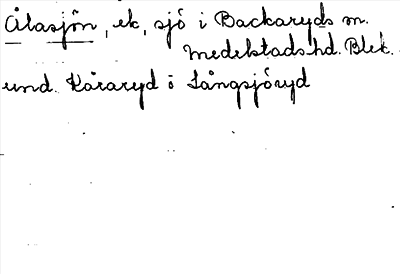 Ålasjön, ek, sjö i Backaryds sn.
Medelstads hd. Blek.
und. Kåraryd ö Långsjöryd